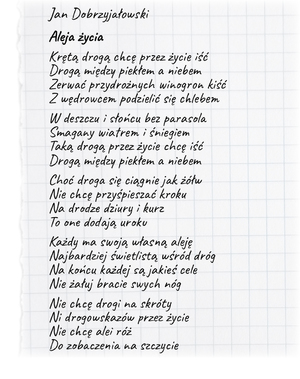 Jan Dobrzyjałowski
Aleja życia
Krętą drogą chcę przez życie iść
Drogą między piekłem a niebem
Zerwać przydrożnych winogron kiść
Z wędrowcem podzielić się chlebem
W deszczu i słońcu bez parasola
Smagany wiatrem i śniegiem
Taką drogą przez życie chcę iść
Drogą między piekłem a niebem
Choć droga się ciągnie jak żółw
Nie chcę przyśpieszać kroku
Na drodze dziury i kurz
To one dodają uroku
Każdy ma swoją własną aleję
Najbardziej świetlistą wśród dróg
Na końcu każdej są jakieś cele
Nie żałuj bracie swych nóg
Nie chcę drogi na skróty
Ni drogowskazów przez życie
Nie chcę alei róż
Do zobaczenia na szczycie